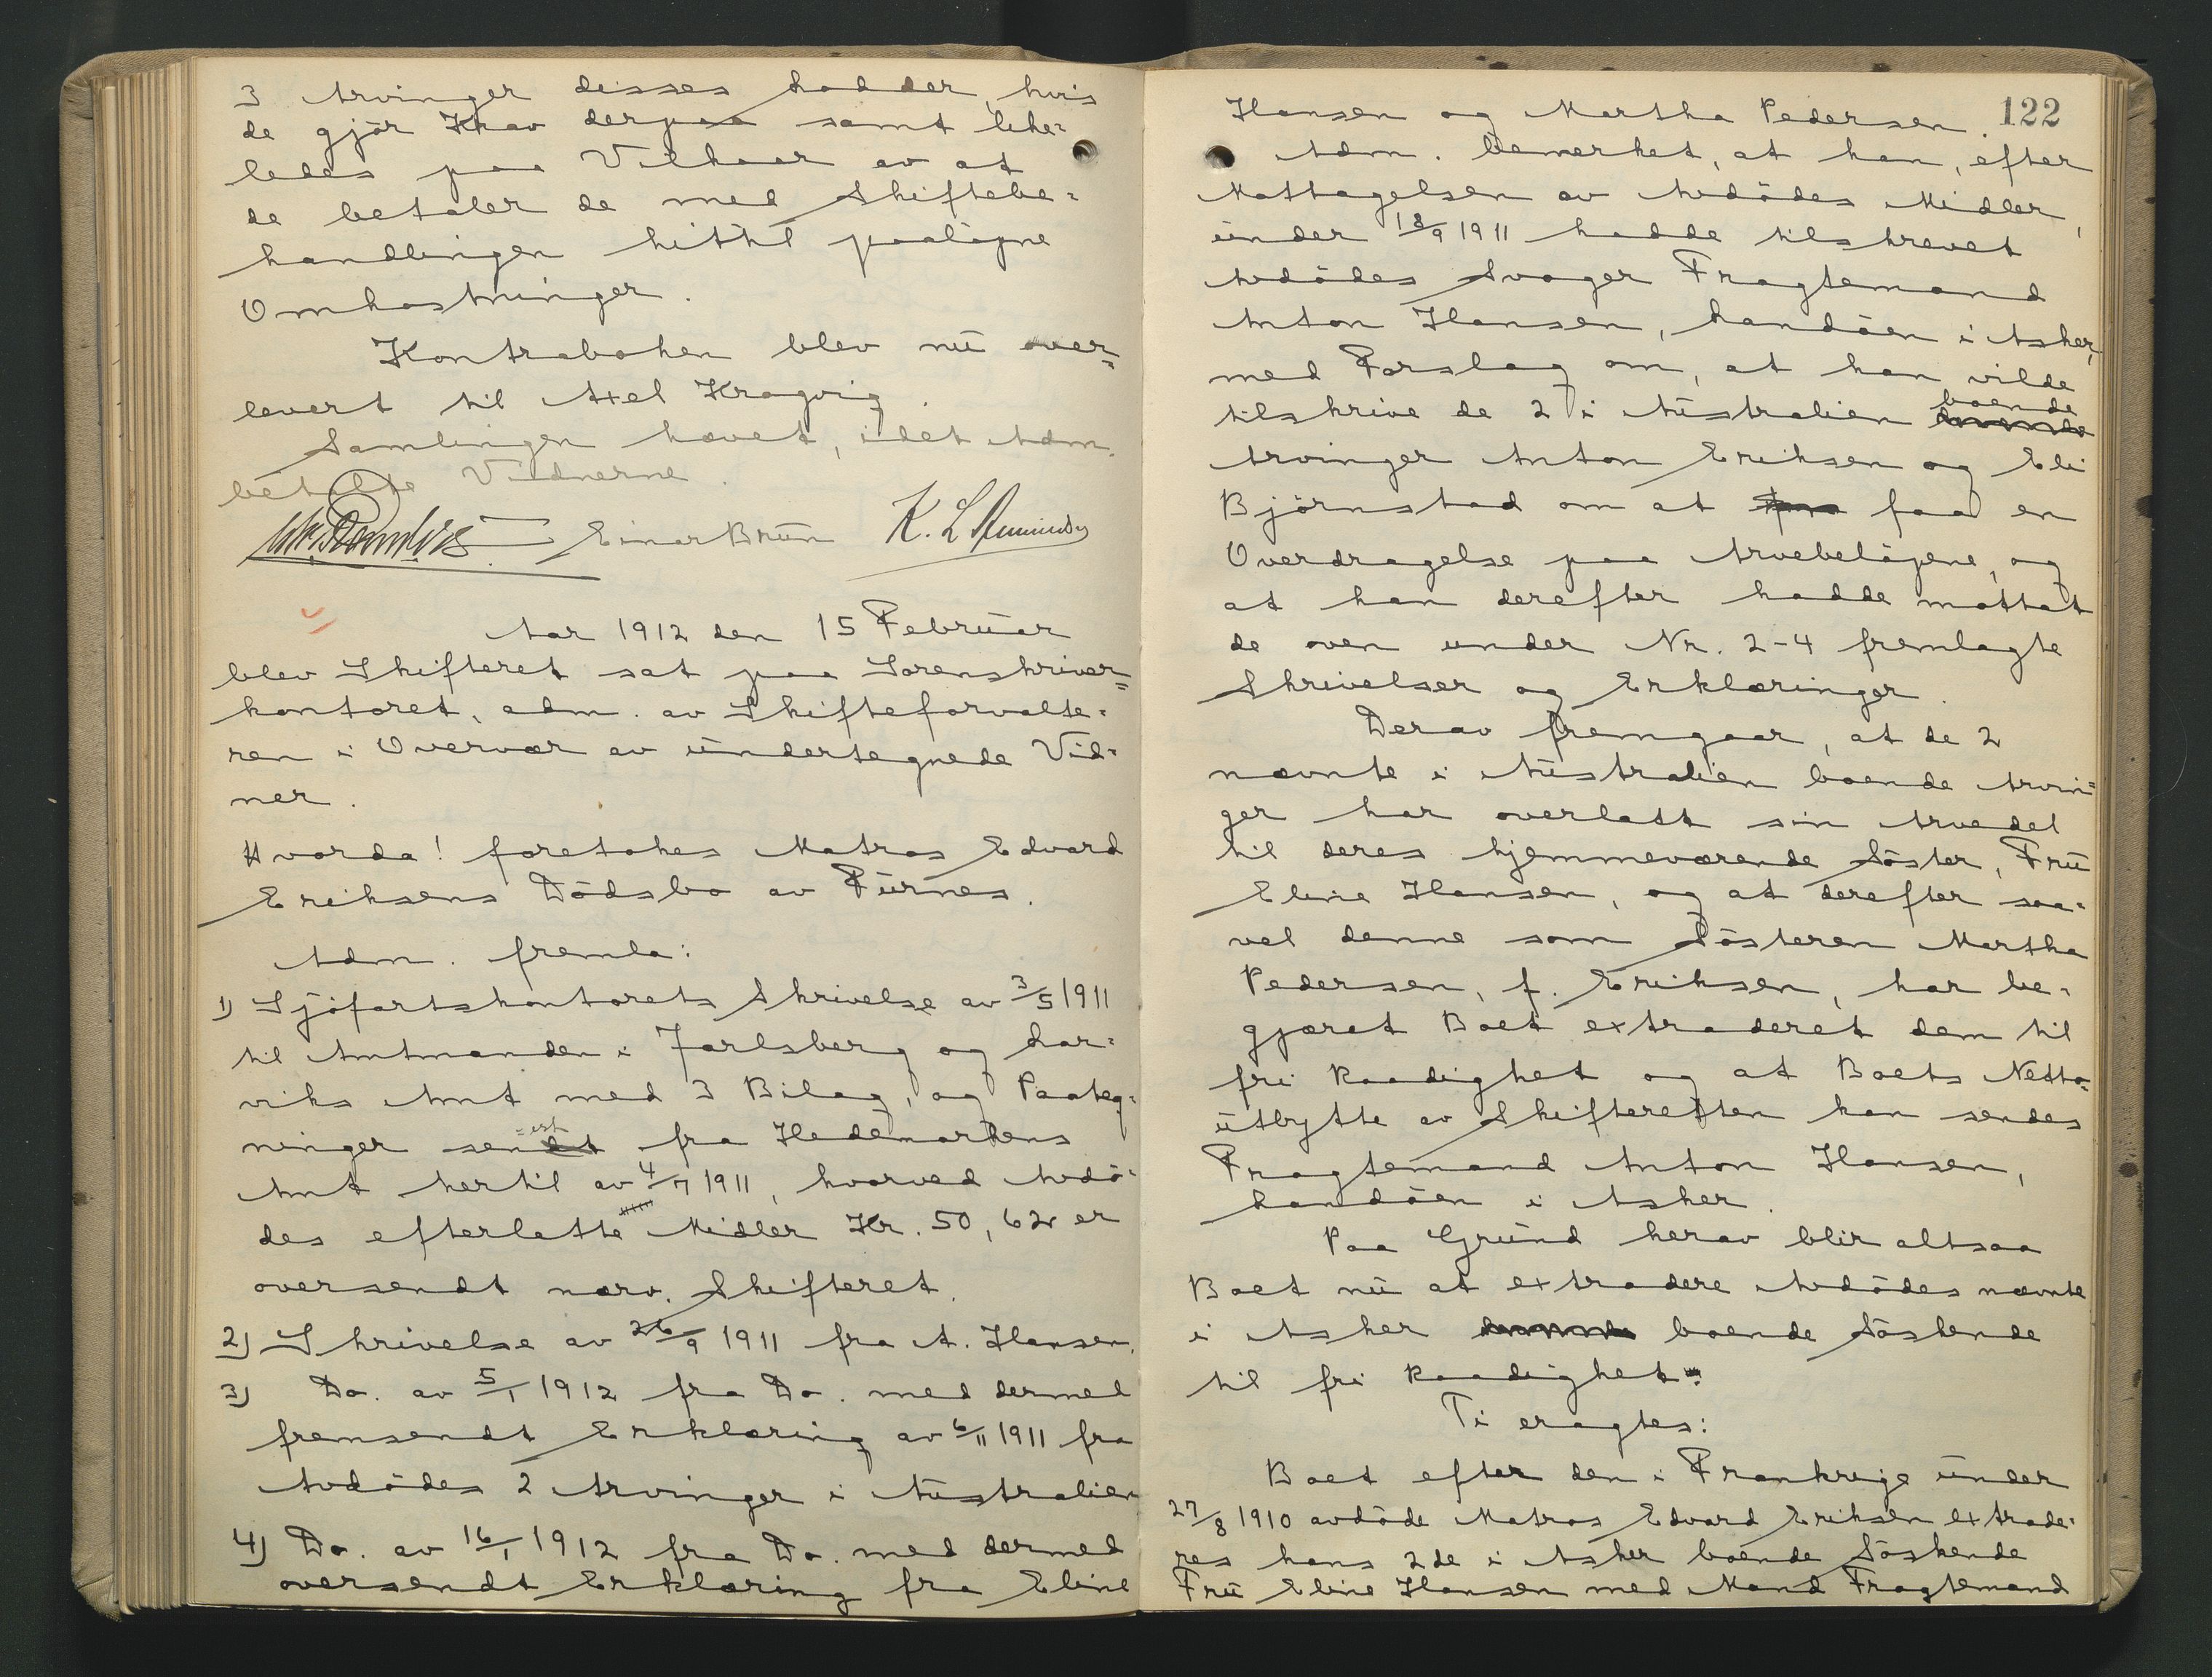 3 Arvinger disses Lodder, hvis
de gjör Krav derpaa samt like-
ledes paa Vilkaar av at
de betaler de med Skiftebe-
handlingen hittil paalöpne
Omkostninger.
Kontraboken blev nu over-
levert til Axel Kragvig.
Samlingen hævet, idet Adm.
betalte Vidnerne.
Einar Brun K. L.
Aar 1912 den 15 Februar
blev Skifteret sat paa Sorenskriver-
kontoret, adm. av Skifteforvalte-
ren i Overvær av undertegnede Vid-
ner.
Hvorda! foretokes Matros Edvard
Eriksens Dödsbo av Furnes.
Adm. fremla:
1) Sjöfartskontorets Skrivelse av 3/5 1911
til Amtmanden i Jarlsberg og Lar-
viks Amt med 3 Bilag, og Paateg-
ninger senest fra Hedemarkens
Amt hertil av 4/7 1911, hvorved Avdö-
des efterlatte Midler Kr. 50,62 er
oversendt nærv. Skifteret.
2) Skrivelse av 26/9 1911 fra A. Hansen.
3) Do. av 5/1 1912 fra Do. med dermed
fremsendt Erklæring av 6/11 1911 fra
Avdödes 2 Arvinger i Australien
4) Do. av 16/1 1912 fra Do. med dermed
oversendt Erklæring fra Eline
122
Hansen og Martha Pedersen.
Adm. bemerket, at han, efter
Mottagelsen av Avdödes Midler,
under 18/9 1911 hadde tilskrevet
Avdödes Svoger Fragtemand
Anton Hansen, Landöen i Asker,
med Forslag om, at han vilde
tilskrive de 2 i Australien boende
Arvinger Anton Eriksen og Eli
Björnstad om at faa en
Overdragelse paa Arvebelöpene, og
at han derefter hadde mottat
de oven under Nr. 2-4 fremlagte
Skrivelser og Erklæringer.
Derav fremgaar, at de 2
nævnte i Australien boende Arvin-
ger har overlatt sin Arvedel
til deres hjemmeværende Söster, Fru
Eline Hansen, og at derefter saa-
vel denne som Sösteren Martha
Pedersen, f. Eriksen, har be-
gjæret Boet extraderet dem til
fri Raadighet og at Boets Netto-
utbytte av Skifteretten kan sendes
Fragtemand Anton Hansen,
Landöen i Asker.
Paa Grund herav blir altsaa
Boet nu at extradere Avdödes nævnte
i Asker boende Söskende
til fri Raadighet.
Ti eragtes:
Boet efter den i Frankrige under
27/8 1910 avdöde Matros Edvard Eriksen extrade-
res hans 2de i Asker boende Söskende
Fru Eline Hansen med Mand Fragtemand